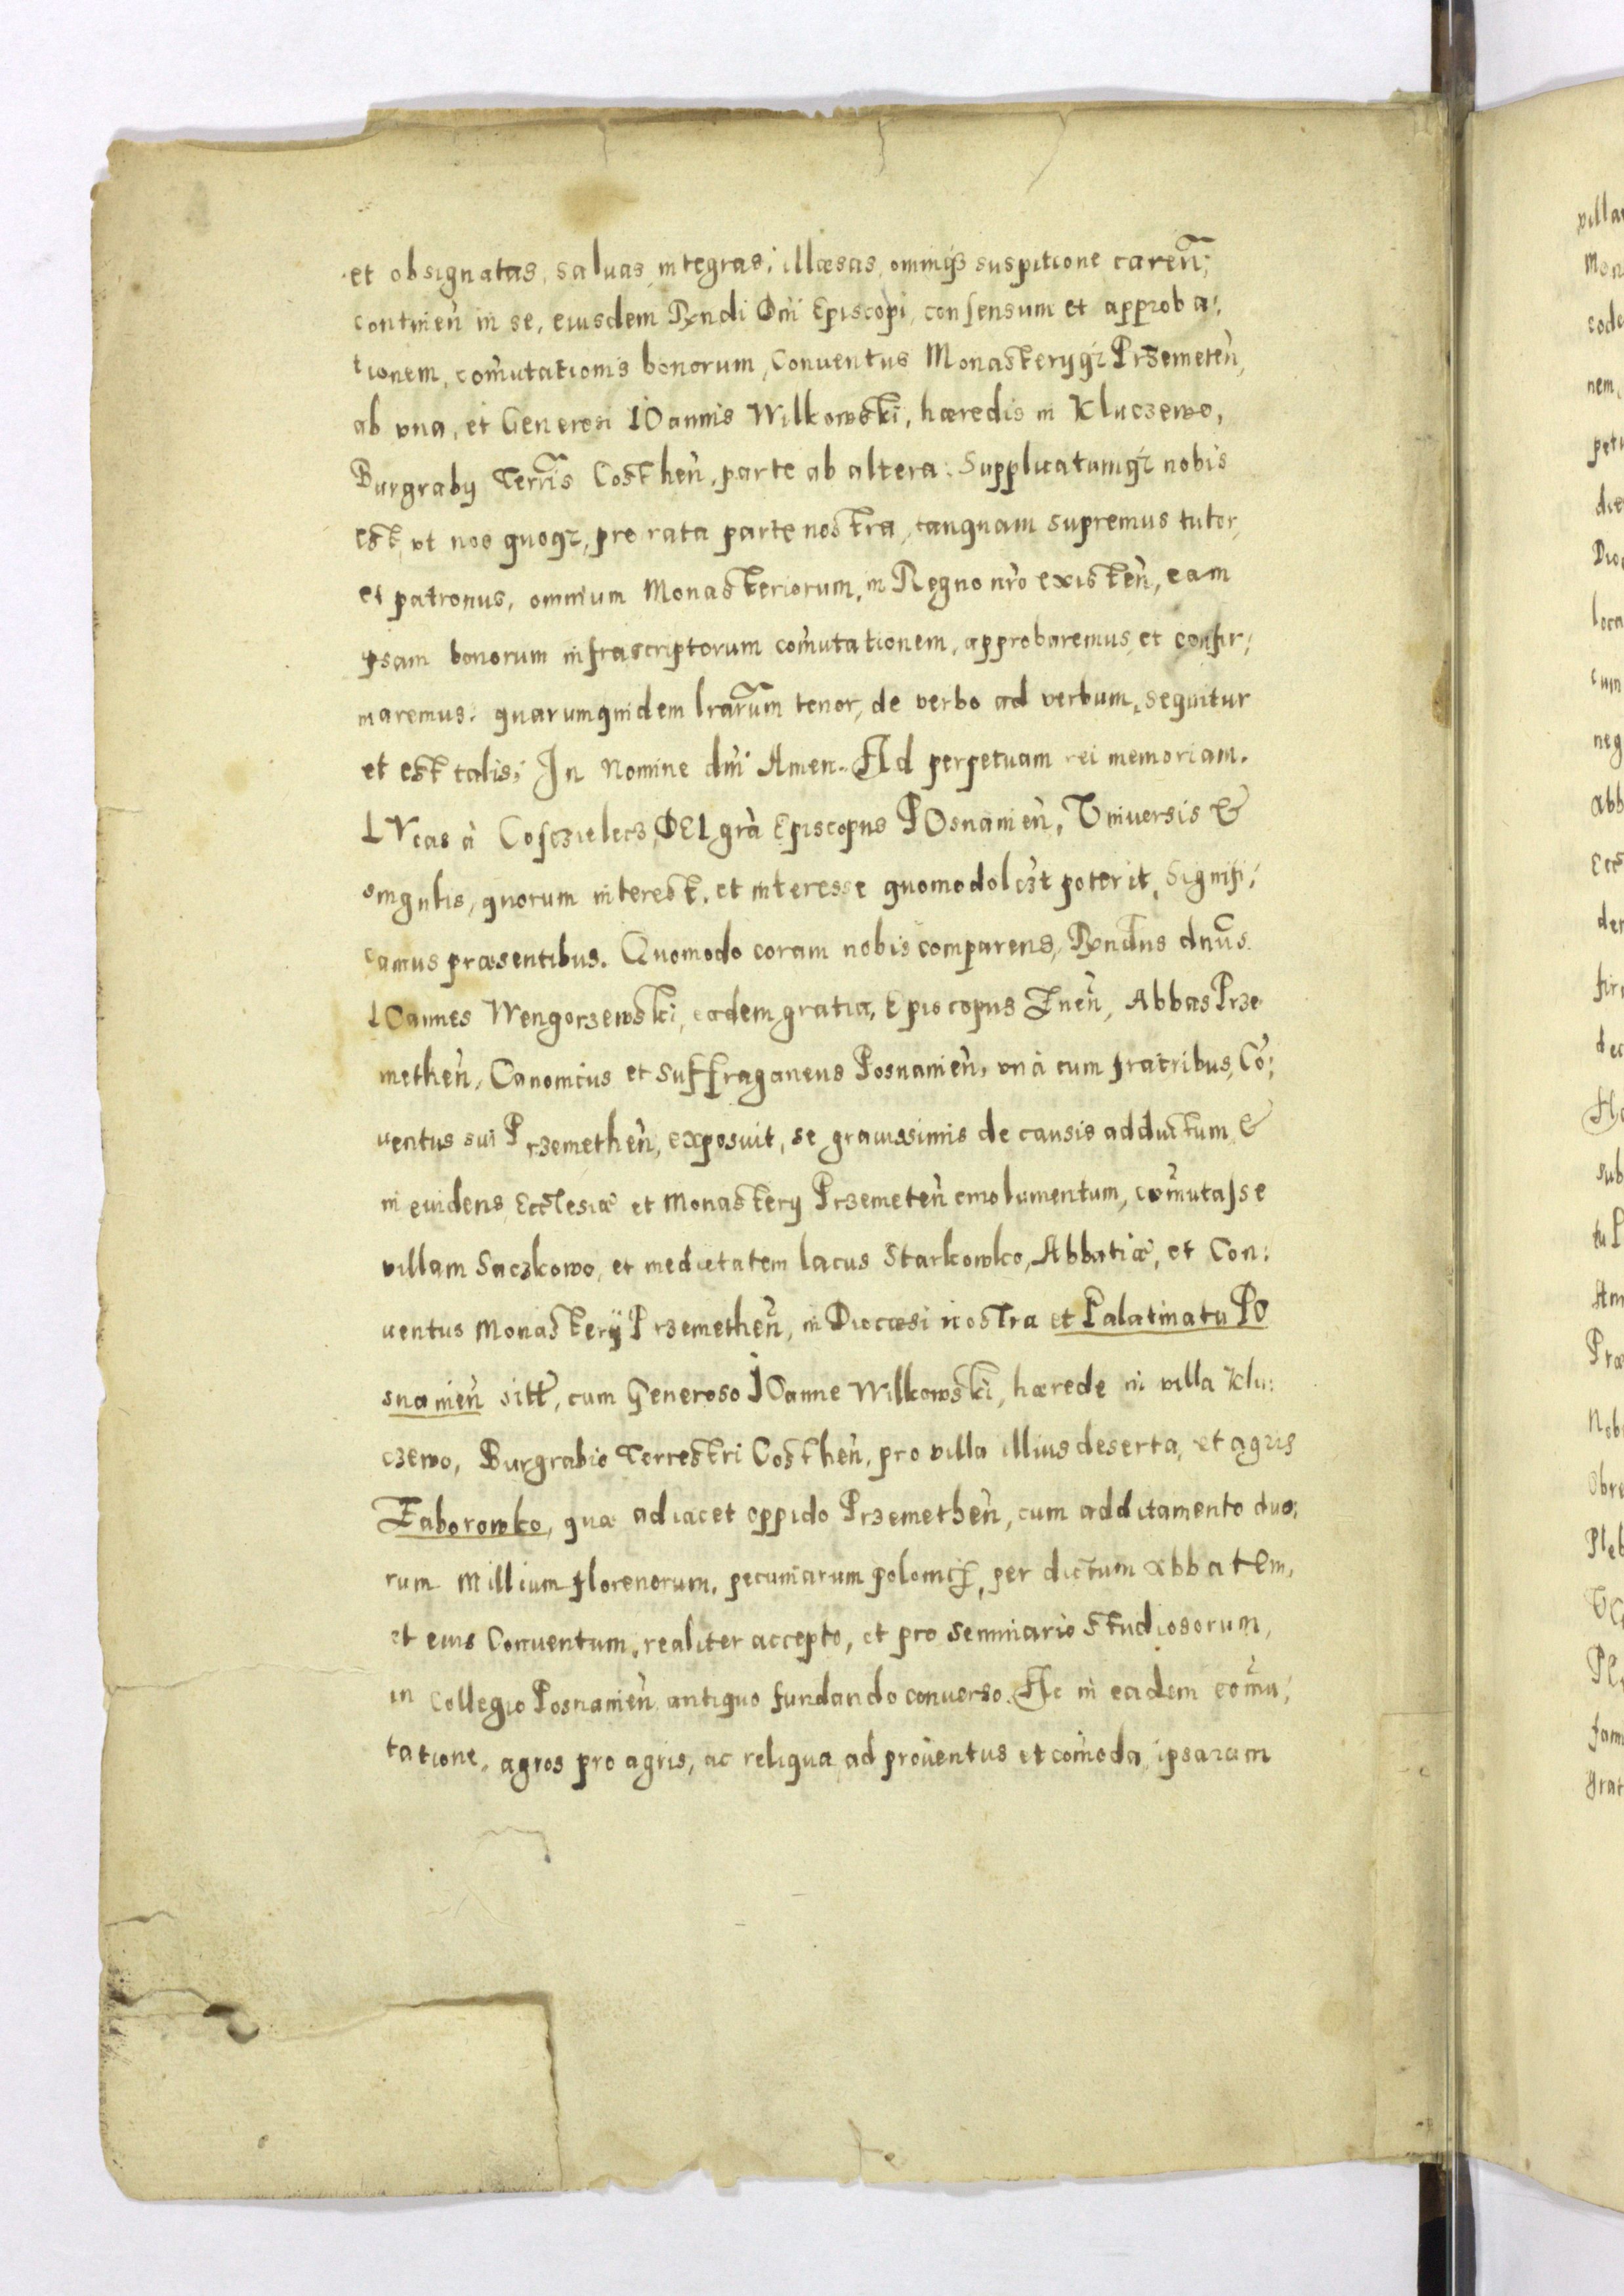 et obsignatas, saluas, integras, illæsas, omniq3 suspitione caren̄;
continen̄ in se, eiusdem Rndi Dni Episcopi, consensum et approba:
tionem, com̄utationis bonorum, Conuentus Monasterÿ q3 Przemeten̄,
ab vna, et Generosi IOannis Wilkowski, hæredis in Kluczewo,
Burgrabÿ Terris Costhen̄, parte ab altera. Supplicatumq3 nobis
est, vt nos quoq3, pro rata parte nostra, tanquam supremus tutor,
et patronus, omnium Monasteriorum, in Regno nr̄o existen̄, eam
ipsam bonorum infrascriptorum com̄utationem, approbaremus, et confir:
maremus. quarumquidem lrarum tenor, de verbo ad verbum, sequitur
et est talis; In Nomine dn̄i Amen. Ad perpetuam rei memoriam.
LVcas à Cosczielecz, DEI gr̄a Episcopus POsnanien̄, Vniversis &
singulis, quorum interest, et interesse quomodol3t poterit, Signifi:
camus præsentibus. Quomodo coram nobis comparens, Rndus dnūs
IOannes Wengorzewski, eadem gratia, Episcopus Enen̄, Abbas Prze
methen̄, Canonicus et Suffraganeus Posnanien̄, vnà cum fratribus, Cō:
uentus sui Przemethen̄, exposuit, se grauissimis de causis adductum &
in euidens Ecclesiæ et Monasterÿ Przemeten̄ emolumentum, com̄utasse
villam Saczkowo, et medietatem lacus Starkowko, Abbatiæ, et Con:
uentus Monasterÿ Przemethen̄, in Diocæsi nostra et Palatinatu PO
snanien̄ sitt, cum Generoso IOanne Wilkowski, hærede in villa Klu:
czewo, Burgrabio Terrestri Costhen̄, pro villa illius deserta, et agris
Zaborowko, quæ adiacet oppido Przemethen̄, cum additamento duo:
rum Millium florenorum, pecuniarum polonic, per dictum Abbatem,
et eius Conuentum, realiter accepto, et pro Seminario Studiosorum,
in Collegio Posnanien̄ antiquo fundando conuerso. Ac in eadem com̄u:
tatione, agros pro agris, ac reliqua ad prouentus et com̄oda ipsarum